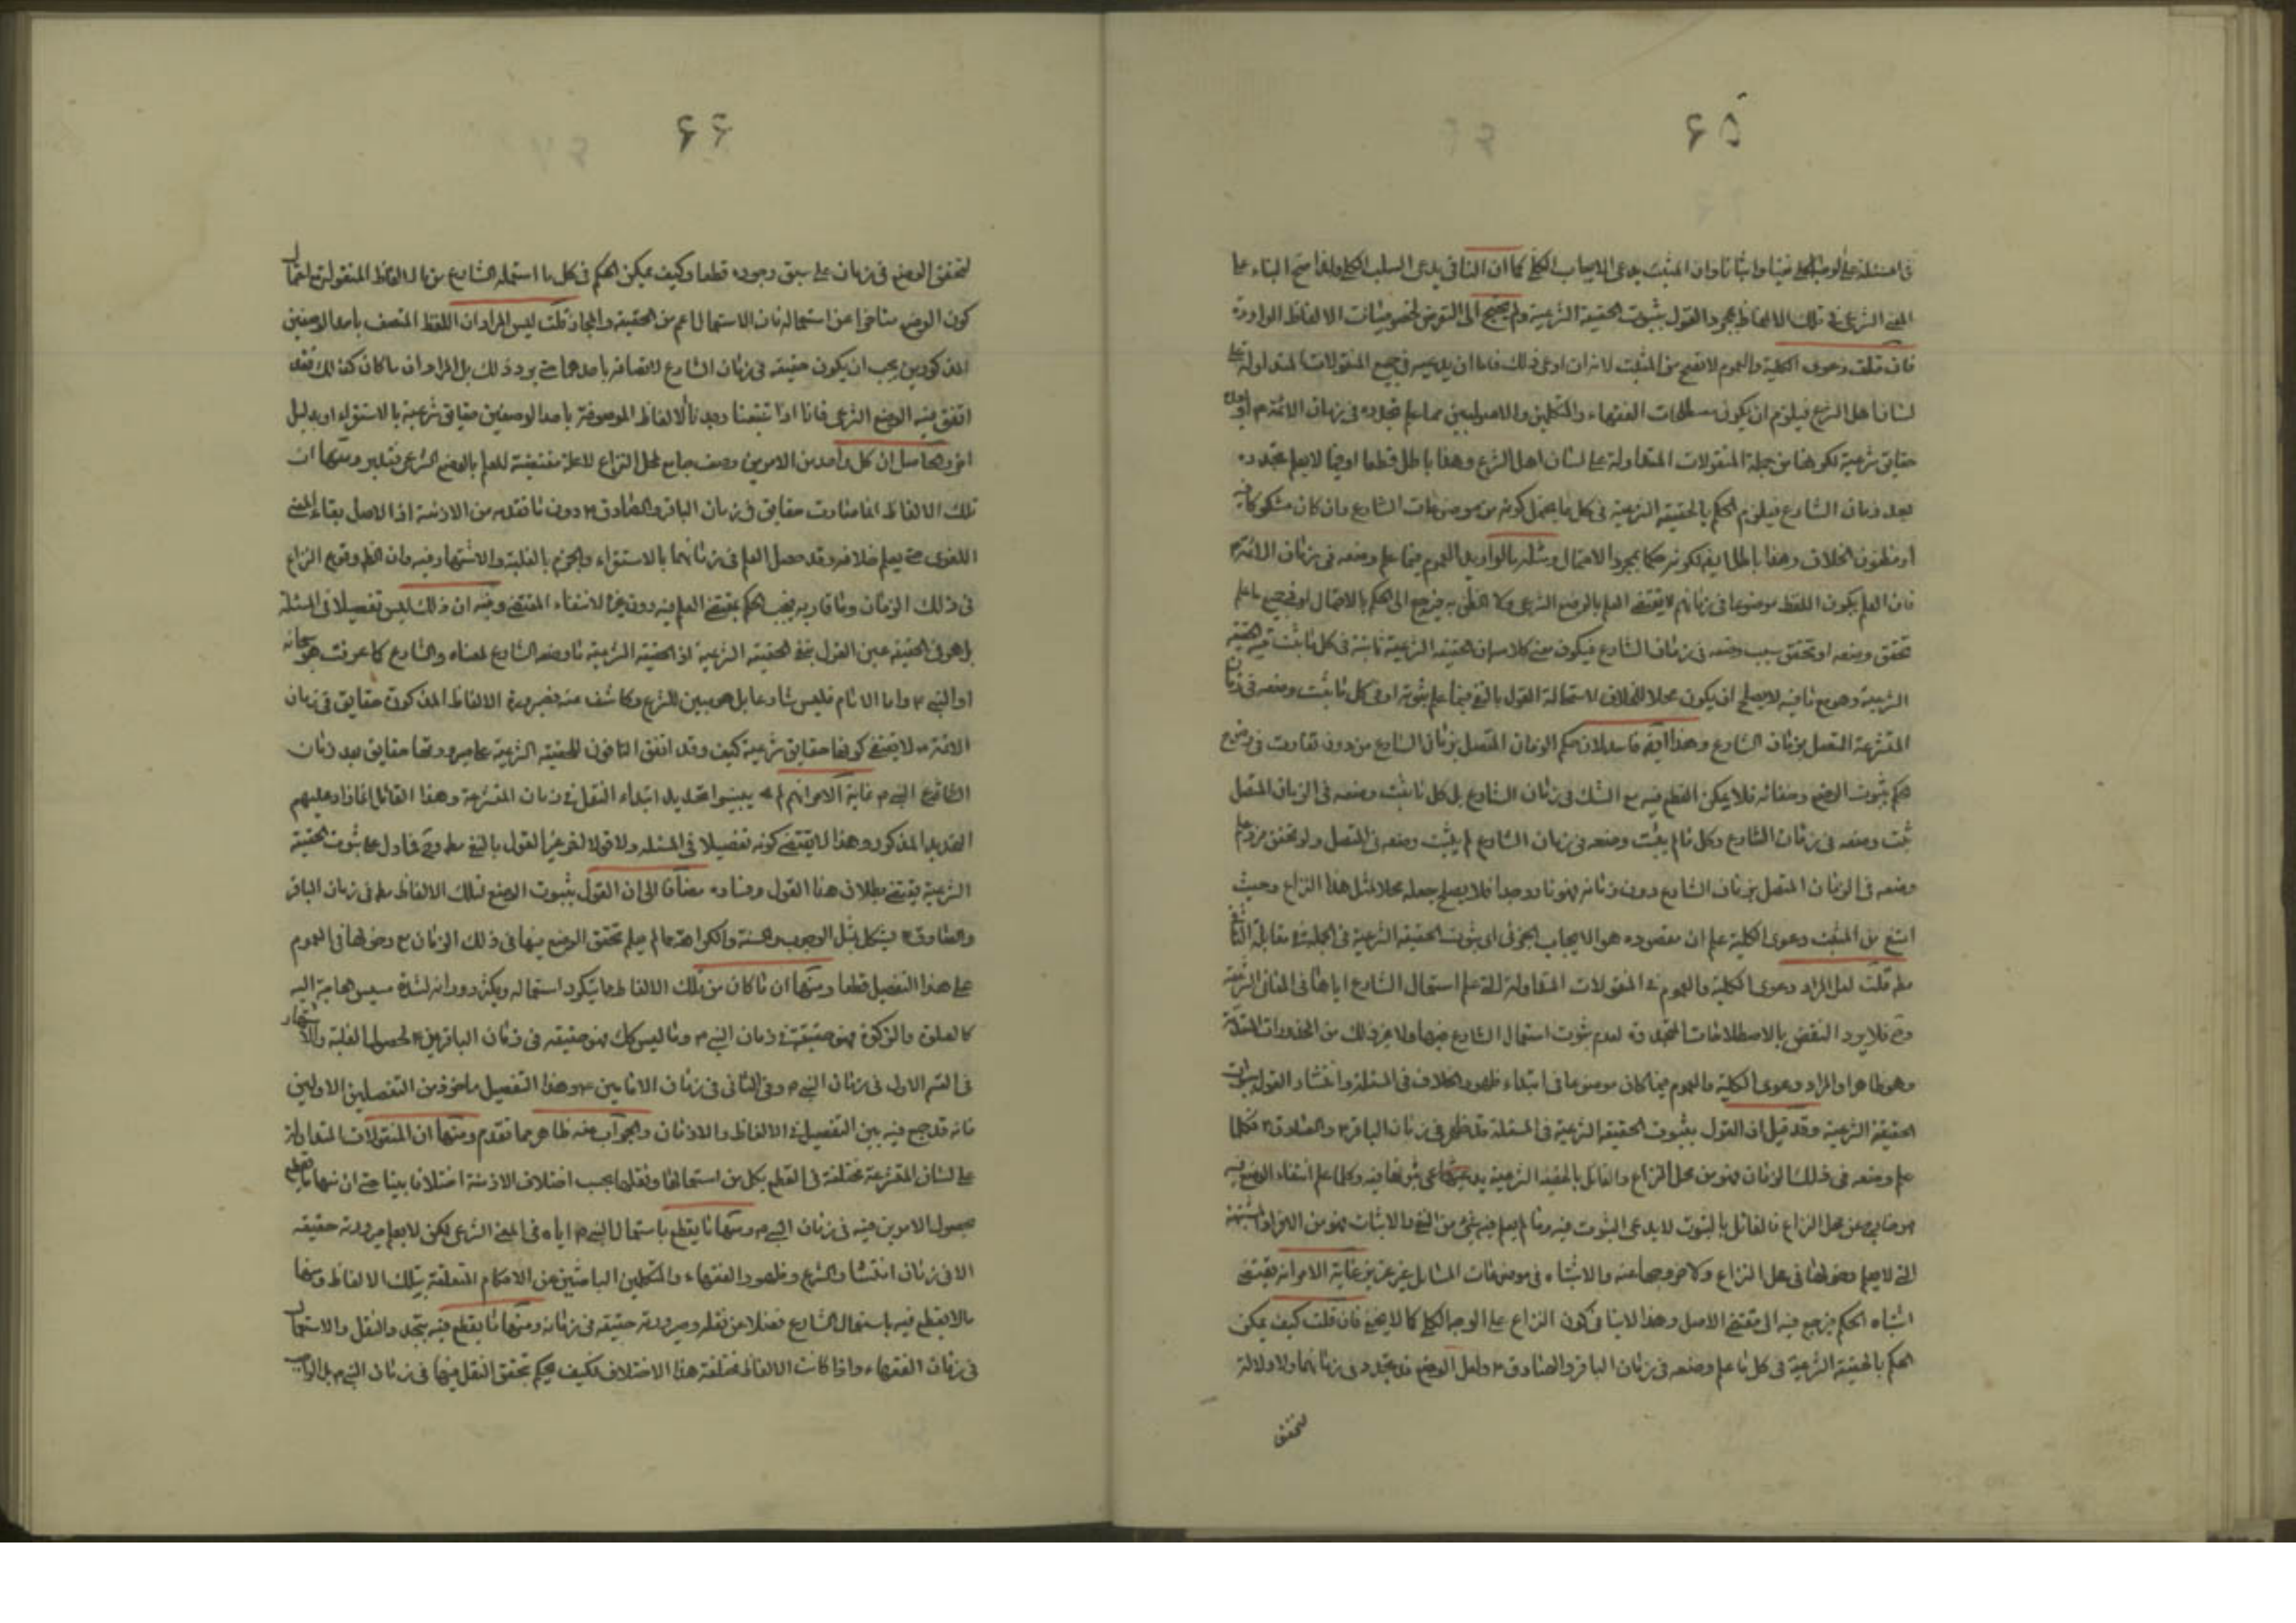 ۶۵
في المسئلة على الوجه الكلي نفيا واثباتا وان المثبت يدعى الايجاب الكلي كما ان النافي يدعى السلب الكلي ولهذا صح البناء على
المعنى الشرعي في تلك الالفاظ بمجرد القول بثبوت الحقيقة الشرعية ولم يحتج الى التعرض لخصوصيات الالفاظ الواردة
فان قلت دعوى الكلية والعموم لا تصح من المثبت لانه ان ادعى ذلك فاما ان يدعيه في جميع المنقولات المتداولة على
لسان اهل الشرع فيلزم ان يكون مصطلحات الفقهاء والمتكلمين والاصوليين مما علم تجدده في زمان الائمة م او بعده
حقايق شرعية لكونها من جملة المنقولات المتداولة على لسان اهل الشرع وهذا باطل قطعا او فيما لا يعلم تجدده
بعد زمان الشارع فيلزم الحكم بالحقيقة الشرعية في كل ما يحتمل كونه من موضوعات الشارع وان كان مشكوكا فيه
او مظنون الخلاف وهذا باطل ايضا لكونه حكما بمجرد الاحتمال ومثله ما لو اريد العموم فيما علم وضعه في زمان الائمة م
فان العلم بكون اللفظ موضوعا في زمانهم لا يقتضى العلم بالوضع الشرعي ولا الظن به فيرجع الى الحكم بالاحتمال او في جميع ما علم
تحقق وضعه او تحقق سبب وضعه في زمان الشارع فيكون معنى كلامه ان الحقيقة الشرعية ثابتة في كل ما ثبت فيه الحقيقة
الشرعية وهو مع ما فيه لا يصلح ان يكون محلا للخلاف لاستحالة القول بالنفي فيما علم ثبوته او في كل ما ثبت وضعه في زمان
المتشرعة المتصل بزمان الشارع وهذا ايضا فاسد لان حكم الزمان المتصل بزمان الشارع من دون تفاوت في وضوح
حكم ثبوت الوضع وخفائه فلا يمكن القطع فيه مع الشك في زمان الشارع بل كل ما ثبت وضعه في الزمان المتصل
ثبت وضعه في زمان الشارع وكل ما لم يثبت وضعه في زمان الشارع لم يثبت وضعه في المتصل ولو تحقق فرد علم
وضعه في الزمان المتصل بزمان الشارع دون زمانه فهو نادر جدا فلا يصلح جعله محلا لمثل هذا النزاع وحيث
امتنع من المثبت دعوى الكلية علم ان مقصوده هو الايجاب الجزئي اي ثبوت الحقيقة الشرعية في الجملة في مقابلة النافي
مط قلت لعل المراد دعوى الكلية والعموم في المنقولات المتداولة التي علم استعمال الشارع اياها في المعاني الشرعية
وح فلا يرد النقض بالاصطلاحات المتجددة لعدم ثبوت استعمال الشارع فيها ولا غير ذلك من المحذورات المتقدمة
وهو ظاهر او المراد دعوى الكلية والعموم فيما كان موضوعا في ابتداء ظهور الخلاف في المسئلة وانتشار القول بثبوت
الحقيقة الشرعية وقد قيل ان القول بثبوت الحقيقة الشرعية في المسئلة قد ظهر في زمان الباقر م والصادق م فكلما
علم وضعه في ذلك الزمان فهو من محل النزاع والقائل بالحقيقة الشرعية يدعى ثبوتها فيه وكلما علم انتفاء الوضع فيه
هو خارج عن محل النزاع فالقائل بالثبوت لا يدعى الثبوت فيه وما لم يعلم فيه شيء من النفي والاثبات فهو من الافراد المشتبهة
التي لا يعلم دخولها في محل النزاع ولا خروجها عنه والاشتباه في موضوعات المسائل غير عزيز غاية الامر انه يقتضى
اشتباه الحكم فيرجع فيه الى مقتضى الاصل وهذا لا ينافي كون النزاع على الوجه الكلي كما لا يخفى فان قلت كيف يمكن
الحكم بالحقيقة الشرعية في كل ما علم وضعه في زمان الباقر والصادق م ولعل الوضع قد تجدد في زمانهما ولا دلالة
لتحقق
۶۶
لتحقق الوضع في زمان على سبق وجوده قطعا وكيف يمكن الحكم في كل ما استعمله الشارع من الالفاظ المنقولة مع احتمال
كون الوضع متاخرا عن استعماله فان الاستعمال اعم من الحقيقة والمجاز قلت ليس المراد ان اللفظ المتصف باحد الوصفين
المذكورين يجب ان يكون حقيقة في زمان الشارع لاتصافه باحدهما حتى يرد ذلك بل المراد ان ما كان كذلك فقد
اتفق فيه الوضع الشرعي فانا اذا تتبعنا وجدنا الالفاظ الموصوفة باحد الوصفين حقايق شرعية بالاستقراء او بدليل
اخر والحاصل ان كل واحد من الامرين وصف جامع لمحل النزاع لا علة مقتضية للعلم بالوضع الشرعي فتدبر ومنها ان
تلك الالفاظ انما صارت حقايق في زمان الباقر والصادق م دون ما تقدمه من الازمنة اذ الاصل بقاء المعنى
اللغوي حتى يعلم خلافه وقد حصل العلم في زمانهما بالاستقراء والجزم بالغلبة والاشتهار فيه وان الظ وقوع النزاع
في ذلك الزمان وما قاربه فيجب الحكم بمقتضى العلم فيه دون غيره لانتفاء المقتضى وفيه ان ذلك ليس تفصيلا في المسئلة
بل هو في الحقيقة عين القول بنفي الحقيقة الشرعية اذ الحقيقة الشرعية ما وضعه الشارع لمعناه والشارع كما عرفت هو الله سبحانه
او النبي م واما الامام فليس شارعا بل هو مبين للشرع وكاشف عنه فصيرورة الالفاظ المذكورة حقايق في زمان
الائمة م لا يقتضى كونها حقايق شرعية كيف وقد اتفق النافون للحقيقة الشرعية على صيرورتها حقايق بعد زمان
الشارع النبي م غاية الامر انهم لم يبينوا تحديد ابتداء النقل في زمان المتشرعة وهذا القائل انما زاد عليهم
التحديد المذكور وهذا لا يقتضى كونه تفصيلا في المسئلة ولا قولا اخر غير القول بالنفي مط وح فما دل على ثبوت الحقيقة
الشرعية يقتضى بطلان هذا القول وفساده مضافا الى ان القول بثبوت الوضع لتلك الالفاظ مط في زمان الباقر
والصادق م يشكل بمثل الوجوب والسنة والكراهة مما لم يعلم تحقق الوضع فيها في ذلك الزمان مع دخولها في العموم
على هذا التفصيل قطعا ومنها ان ما كان من تلك الالفاظ مما يتكرر استعماله ويكثر دورانه لشدة مسيس الحاجة اليه
كالصلوة والزكوة فهو حقيقة في زمان النبي م وما ليس كك فهو حقيقة في زمان الباقرين م لحصول الغلبة والاشتهار
في القسم الاول في زمان النبي م وفي الثاني في زمان الامامين م وهذا التفصيل ماخوذ من التفصيلين الاولين
فانه قد جمع فيه بين التفصيل في الالفاظ والازمان والجواب عنه ظاهر مما تقدم ومنها ان المنقولات المتداولة
على لسان المتشرعة مختلفة في القطع بكل من استعمالها ونقلها بحسب اختلاف الازمنة اختلافا بينا حتى ان منها ما يقطع
بحصول الامرين فيه في زمان النبي م ومنها ما يقطع باستعمال النبي م اياه في المعنى الشرعي لكن لا يعلم صيرورته حقيقة
الا في زمان انتشار الشرع وظهور الفقهاء والمتكلمين الباحثين عن الاحكام المتعلقة بتلك الالفاظ ومنها
ما لا يقطع فيه باستعمال الشارع فضلا عن نقله وصيرورته حقيقة في زمانه ومنها ما يقطع فيه بتجدد النقل والاستعمال
في زمان الفقهاء واذا كانت الالفاظ مختلفة هذا الاختلاف فكيف يحكم بتحقق النقل فيها في زمان النبي م بل الواجب